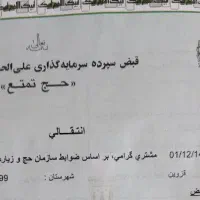 قبض سپرده سرمایه‌گذاری علی‌الح
«حج تمتع»
انتقالی
01/12/14 مشتری گرامی، بر اساس ضوابط سازمان حج و زیار
قزوین شهرستان : 99